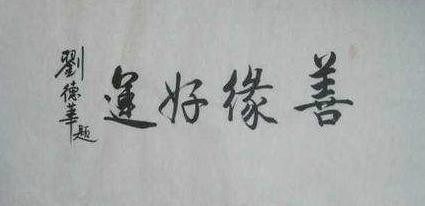 善緣好運
劉德華題